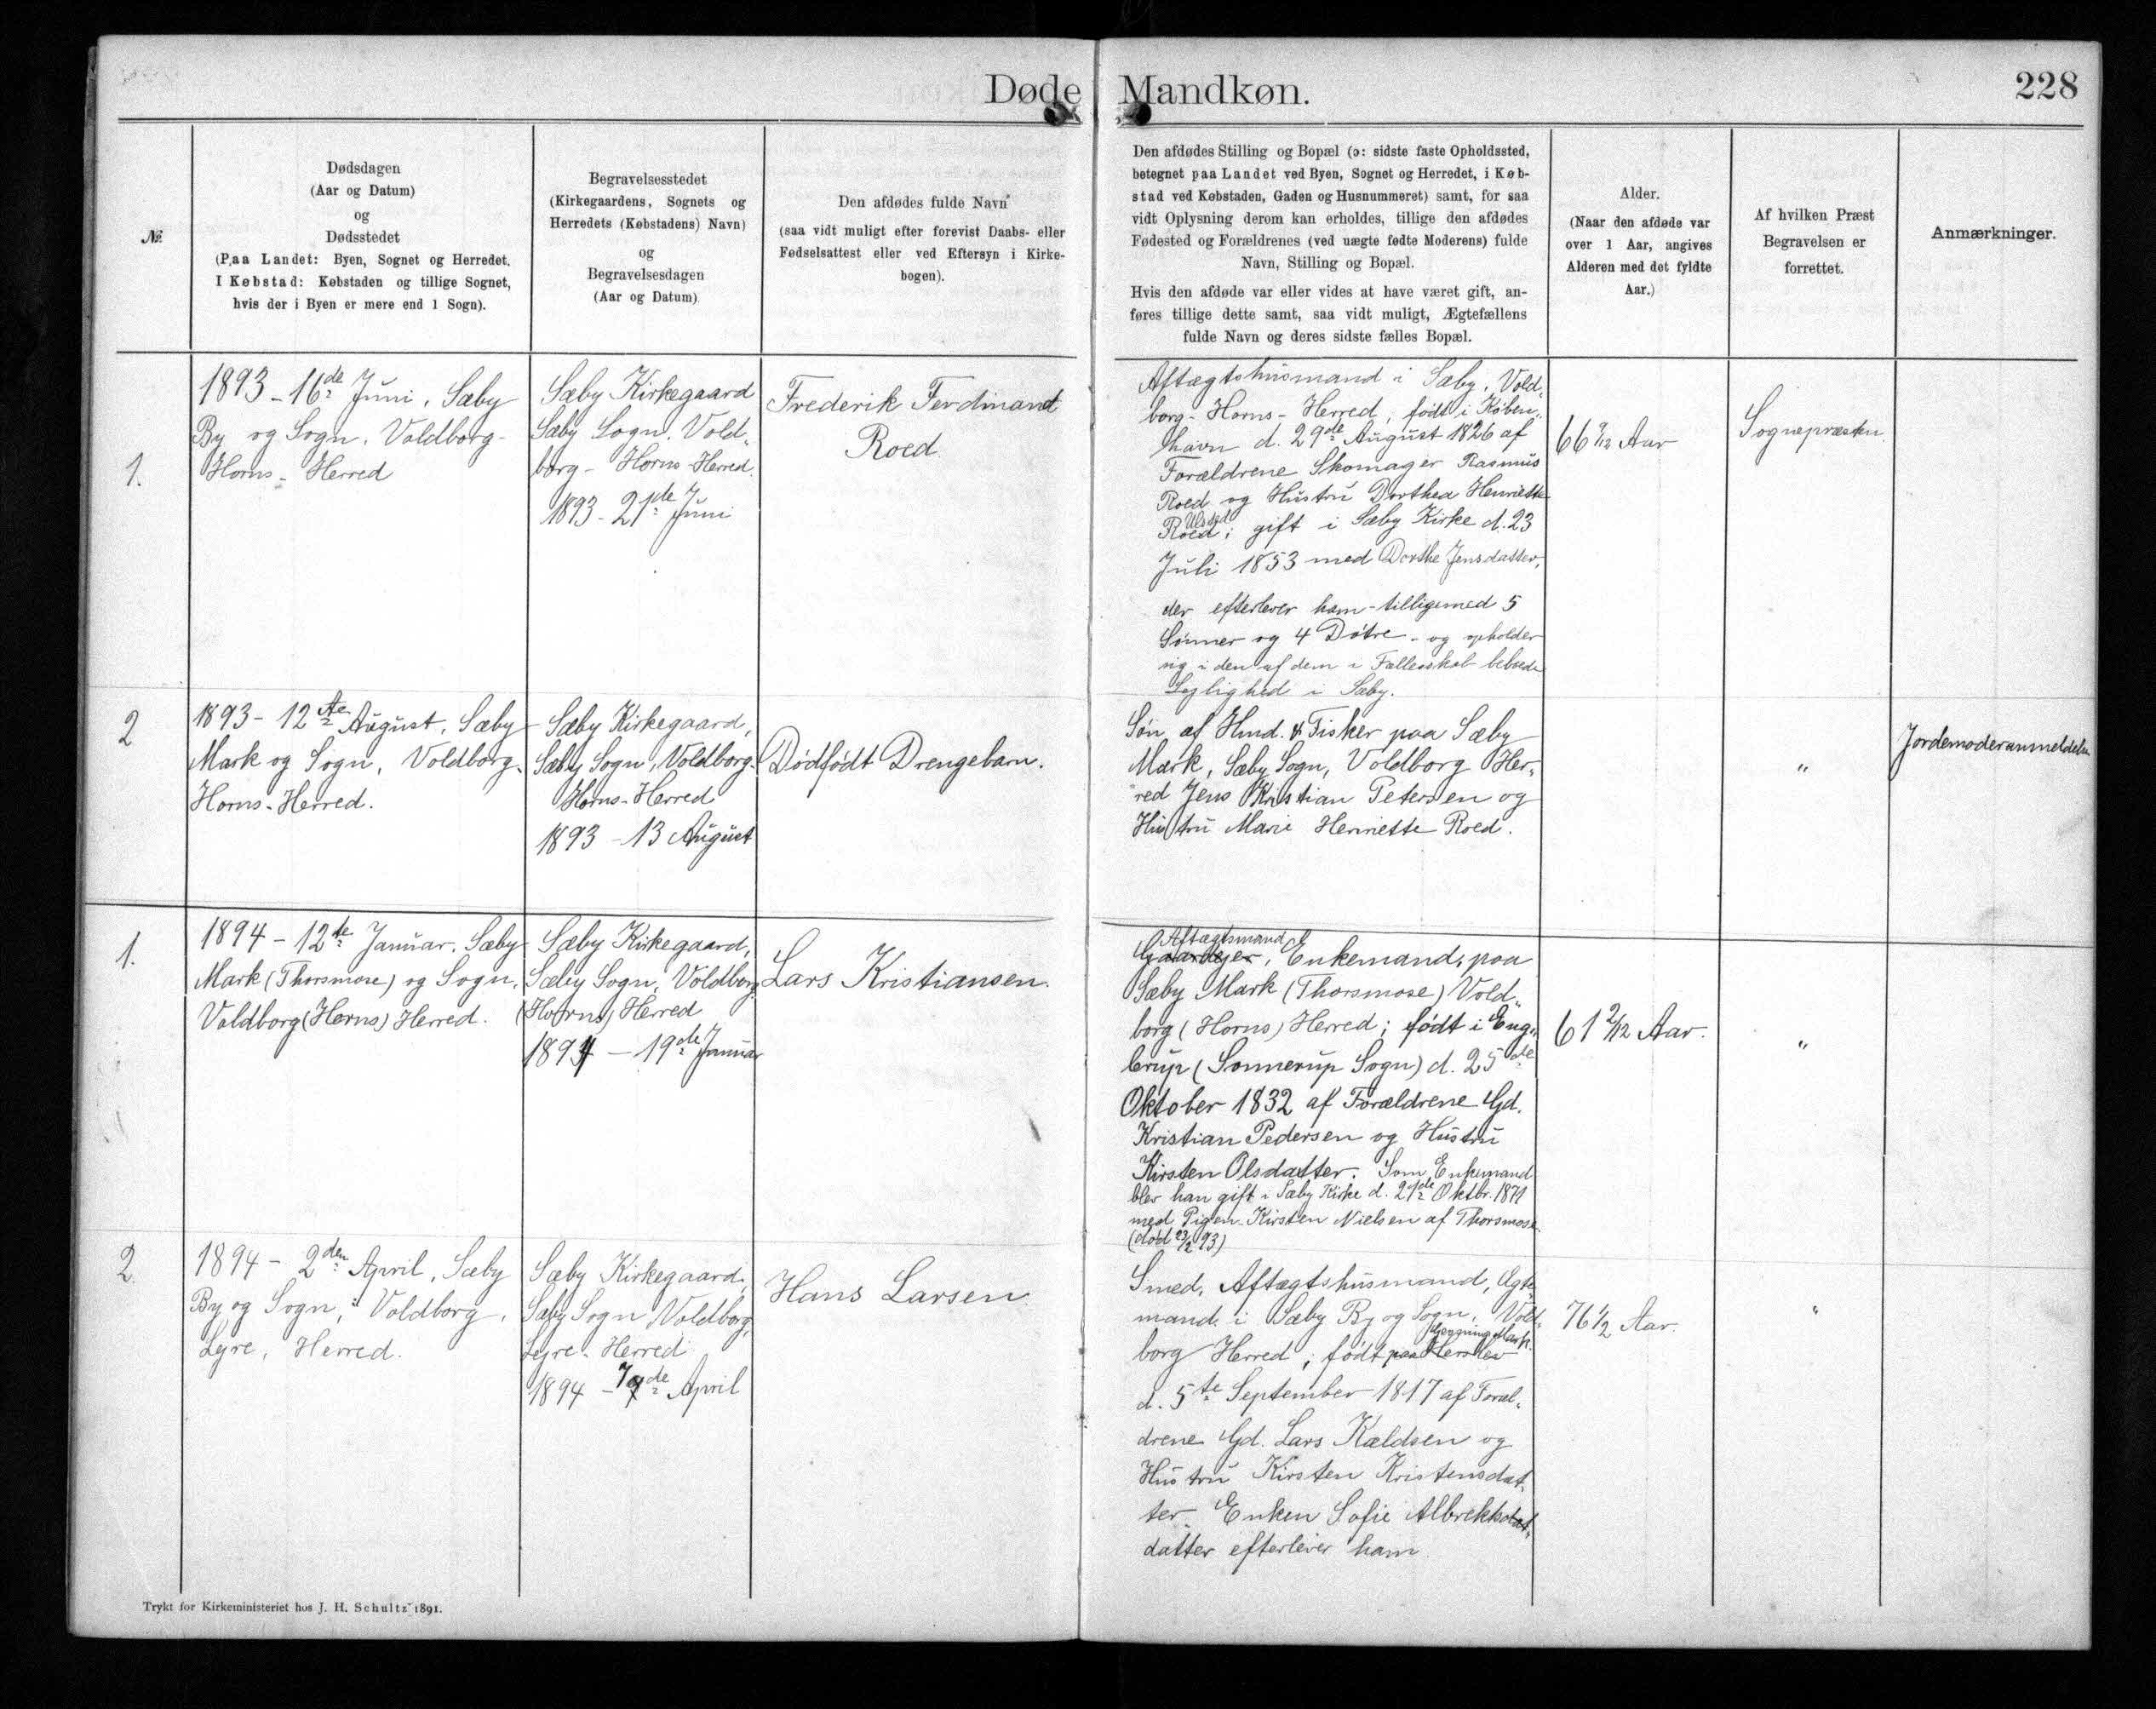 Døde Mandkøn.
228
№
Dødsdagen
(Aar og Datum)
og
Dødsstedet
(Paa Landet: Byen, Sognet og Herredet.
I Købstad: Købstaden og tillige Sognet,
hvis der i Byen er mere end 1 Sogn).
Begravelsesstedet
(Kirkegaardens, Sognets og
Herredets (Købstadens) Navn)
og
Begravelsesdagen
(Aar og Datum)
Den afdødes fulde Navn
(saa vidt muligt efter forevist Daabs- eller
Fødselsattest eller ved Eftersyn i Kirke-
bogen).
Den afdødes Stilling og Bopæl (ɔ: sidste faste Opholdssted,
betegnet paa Landet ved Byen, Sognet og Herredet, i Køb-
stad ved Købstaden, Gaden og Husnummeret) samt, for saa
vidt Oplysning derom kan erholdes, tillige den afdødes
Fødested og Forældrenes (ved uægte fødte Moderens) fulde
Navn, Stilling og Bopæl.
Hvis den afdøde var eller vides at have været gift, an-
føres tillige dette samt, saa vidt muligt, Ægtefællens
fulde Navn og deres sidste fælles Bopæl.
Alder.
(Naar den afdøde var
over 1 Aar, angives
Alderen med det fyldte
Aar.)
Af hvilken Præst
Begravelsen er
forrettet.
Anmærkninger.
1.
1893 - 16de Juni, Sæby
By og Sogn, Voldborg-
Horns - Herred
Sæby Kirkegaard
Sæby Sogn, Vold-
borg - Horns - Herred.
1893 - 21de Juni
Frederik Ferdinand
Roed.
Aftægtshusmand i Sæby, Vold-
borg - Horns - Herred, født i Køben-
havn d. 29de August 1826 af
Forældrene Skomager Rasmus
Roed og Hustru Dorthea Henriette
Ulsted
Roed; gift i Sæby Kirke d. 23
Juli 1853 med Dorthe Jensdatter,
der efterlever ham - tilligemed 5
Sønner og 4 Døtre - og opholder
sig i den af dem i Fællesskab beboede
Lejlighed i Sæby.
66 9/12 Aar
Sognepræsten
2
1893 - 12te August, Sæby
Mark og Sogn, Voldborg-
Horns - Herred.
Sæby Kirkegaard,
Sæby Sogn, Voldborg-
Horns - Herred
1893 - 13 August
Dødfødt Drengebarn.
Søn af Hmd. & Fisker paa Sæby
Mark, Sæby Sogn, Voldborg Her-
red Jens Kristian Petersen og
Hustru Marie Henriette Roed.
"
Jordemoderanmeldelse
1.
1894 - 12te Januar, Sæby
Mark (Thorsmose) og Sogn,
Voldborg (Horns) Herred.
Sæby Kirkegaard,
Sæby Sogn, Voldborg
(Horns) Herred
1894 - 19de Januar
Lars Kristiansen.
Aftægtsmand
Gaardejer, Enkemand, paa
Sæby Mark (Thorsmose) Vold-
borg (Horns) Herred; født i Eng-
lerup (Sonnerup Sogn) d. 25de
Oktober 1832 af Forældrene Gd.
Kristian Pedersen og Hustru
Kirsten Olsdatter. Som Enkemand
blev han gift i Sæby Kirke d. 21de Oktbr. 1871
med Pigen Kirsten Nielsen af Thorsmose.
(død 23/2 93)
61 2/12 Aar.
"
2
1894 - 2den April, Sæby
By og Sogn, i Voldborg,
Lejre, Herred.
Sæby Kirkegaard,
Sæby Sogn Voldborg,
Lejre - Herred
1894 - 7de April
Hans Larsen
Smed, Aftægtshusmand, Ægte-
mand i Sæby By og Sogn, Vold-
borg Herred; født paa Herslev
d. 5te September 1817 af Foræl-
drene Gd. Lars Kældsen og
Hustru Kirsten Kristensdat-
ter. Enken Sofie Albrektsdat-
datter efterlever ham
76 1/2 Aar.
"
Trykt for Kirkeministeriet hos J. H. Schultz 1891.